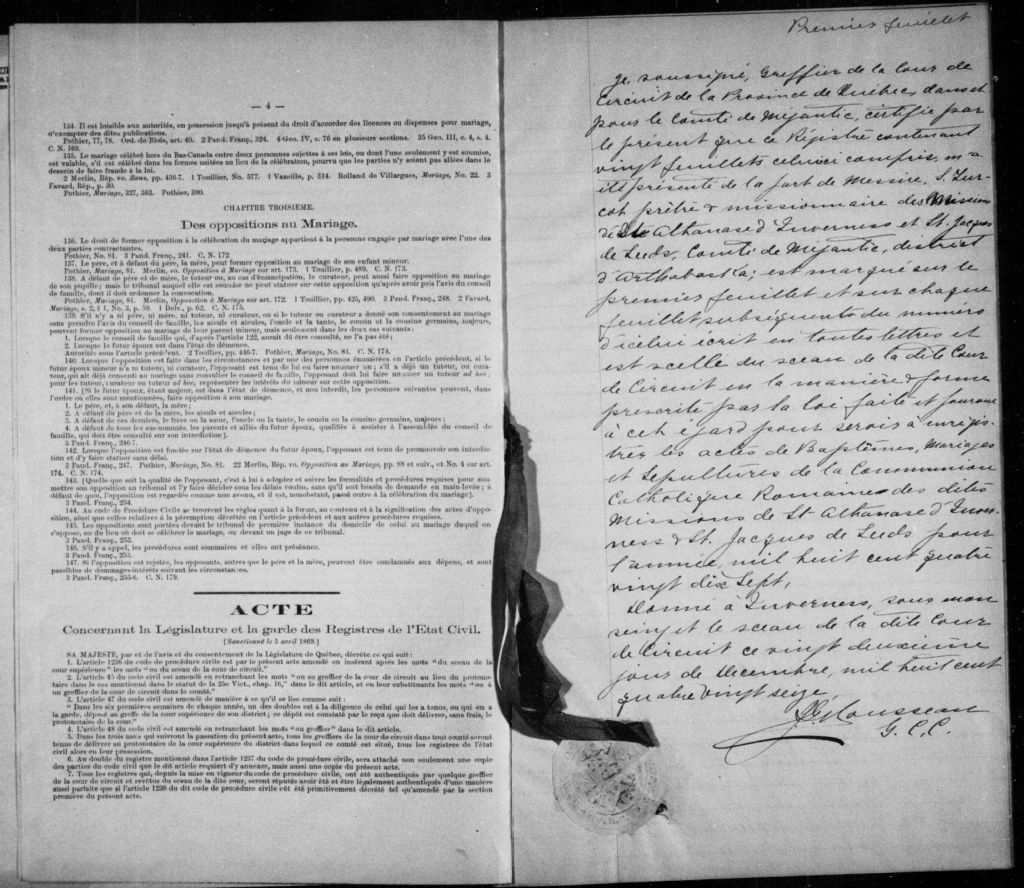 — 4 —
134. Il est loisible aux autorités, en possession jusqu'à présent du droit d'accorder des licences ou dispenses pour mariage,
d'exempter des dites publications.
Pothier, 77, 78. Ord. de Blois, art. 40. 2 Pand. Franç., 324. 4 Geo. IV, c. 76 en plusieurs sections. 35 Geo. III, c. 4, s. 4.
C. N. 169.
135. Le mariage célébré hors du Bas-Canada entre deux personnes sujettes à ses lois, ou dont l'une seulement y est soumise,
est valable, s'il est célébré dans les formes usitées au lieu de la célébration, pourvu que les parties n'y soient pas allées dans le
dessein de faire fraude à la loi.
2 Merlin, Rép. vo. Bans, pp. 436-7. 1 Toullier, No. 577. 1 Vazeille, p. 314. Rolland de Villargues, Mariage, No. 22. 3
Favard, Rép., p. 30.
Pothier, Mariage, 327, 363. Pothier, 390.
CHAPITRE TROISIEME.
Des oppositions au Mariage.
136. Le droit de former opposition à la célébration du mariage appartient à la personne engagée par mariage avec l'une des
deux parties contractantes.
Pothier, No. 81. 3 Pand. Franç., 241. C. N. 172
137. Le père, et à défaut du père, la mère, peut former opposition au mariage de son enfant mineur.
Pothier, Mariage, 81. Merlin, vo. Opposition à Mariage sur art. 173. 1 Toullier, p. 489. C. N. 173.
138. A défaut de père et de mère, le tuteur ou, au cas d'émancipation, le curateur, peut aussi faire opposition au mariage
de son pupille; mais le tribunal auquel elle est soumise ne peut statuer sur cette opposition qu'après avoir pris l'avis du conseil
de famille, dont il doit ordonner la convocation.
Pothier, Mariage, 81. Merlin, Opposition à Mariage sur art. 172. 1 Toullier, pp. 425, 490. 3 Pand. Franç., 248. 2 Favard,
Mariage, s. 2, § 1, No. 3, p. 59. 1 Delv., p. 62. C. N. 175.
139. S'il n'y a ni père, ni mère, ni tuteur, ni curateur, ou si le tuteur ou curateur a donné son consentement au mariage
sans prendre l'avis du conseil de famille, les aïeuls et aïeules, l'oncle et la tante, le cousin et la cousine germains, majeurs,
peuvent former opposition au mariage de leur parent mineur, mais seulement dans les deux cas suivants :
1. Lorsque le conseil de famille qui, d'après l'article 122, aurait dû être consulté, ne l'a pas été;
2. Lorsque le futur époux est dans l'état de démence.
Autorités sous l'article précédent. 2 Toullier, pp. 446-7. Pothier, Mariage, No. 81. C. N. 174.
140. Lorsque l'opposition est faite dans les circonstances et par une des personnes énumérées en l'article précédent, si le
futur époux mineur n'a ni tuteur, ni curateur, l'opposant est tenu de lui en faire nommer un; s'il a déjà un tuteur, ou cura-
teur, qui ait déjà consenti au mariage sans consulter le conseil de famille, l'opposant doit lui faire nommer un tuteur ad hoc,
pour les tuteur, curateur ou tuteur ad hoc, représenter les intérêts du mineur sur cette opposition.
141. [Si le futur époux, étant majeur, est dans l'état de démence, et non interdit, les personnes suivantes peuvent, dans
l'ordre où elles sont mentionnées, faire opposition à son mariage.
1. Le père, et, à son défaut, la mère;
2. A défaut du père et de la mère, les aïeuls et aïeules;
3. A défaut de ces derniers, le frère ou la sœur, l'oncle ou la tante, le cousin ou la cousine germains, majeurs;
4. A défaut de tous les sus-nommés, les parents et alliés du futur époux, qualifiés à assister à l'assemblée du conseil de
famille, qui doit être consulté sur son interdiction].
3 Pand. Franç., 246-7.
142. Lorsque l'opposition est fondée sur l'état de démence du futur époux, l'opposant est tenu de promouvoir son interdic-
tion et d'y faire statuer sans délai.
3 Pand. Franç., 247. Pothier, Mariage, No. 81. 22 Merlin, Rép. vo. Opposition au Mariage, pp. 88 et suiv., et No. 4 sur art.
174. C. N. 174.
143. [Quelle que soit la qualité de l'opposant, c'est à lui à adopter et suivre les formalités et procédures requises pour sou-
mettre son opposition au tribunal et l'y faire décider sous les délais voulus, sans qu'il soit besoin de demande en main-levée; à
défaut de quoi, l'opposition est regardée comme non avenue, et il est, nonobstant, passé outre à la célébration du mariage].
3 Pand. Franç., 254.
144. Au code de Procédure Civile se trouvent les règles quant à la forme, au contenu et à la signification des actes d'oppo-
sition, ainsi que celles relatives à la péremption décrétée en l'article précédent et aux autres procédures requises.
145. Les oppositions sont portées devant le tribunal de première instance du domicile de celui au mariage duquel on
s'oppose, ou du lieu où doit se célébrer le mariage, ou devant un juge de ce tribunal.
3 Pand. Franç., 253.
146. S'il y a appel, les procédures sont sommaires et elles ont préséance.
3 Pand. Franç., 253.
147. Si l'opposition est rejetée, les opposants, autres que le père et la mère, peuvent être condamnés aux dépens, et sont
passibles de dommages-intérêts suivant les circonstances.
3 Pand. Franç., 255-6. C. N. 179.
ACTE
Concernant la Législature et la garde des Registres de l'Etat Civil.
(Sanctionné le 5 avril 1869.)
SA MAJESTE, par et de l'avis et du consentement de la Législature de Québec, décrète ce qui suit :
1. L'article 1236 du code de procédure civile est par le présent acte amendé en insérant après les mots "du sceau de la
cour supérieure" les mots "ou du sceau de la cour de circuit."
2. L'article 45 du code civil est amendé en retranchant les mots "ou au greffier de la cour de circuit au lieu du protono-
taire dans le cas mentionné dans le statut de la 25e Vict., chap. 16," dans le dit article, et en leur substituants les mots "ou à
un greffier de la cour de circuit dans le comté."
3. L'article 47 du code civil est amendé de manière à ce qu'il se lise comme suit :
" Dans les six premières semaines de chaque année, un des doubles est à la diligence de celui qui les a tenus, ou qui en a
la garde, déposé au greffe de la cour supérieure de son district; ce dépôt est constaté par le reçu que doit délivrer, sans frais, le
protonotaire de la cour."
4. L'article 48 du code civil est amendé en retranchant les mots "ou greffier" dans le dit article.
5. Dans les trois mois qui suivront la passation du présent acte, tous les greffiers de la cour de circuit dans tout comté seront
tenus de délivrer au protonotaire de la cour supérieure du district dans lequel ce comté est situé, tous les registres de l'état
civil alors en leur possession.
6. Au double du registre mentionné dans l'article 1237 du code de procédure civile, sera attaché non seulement une copie
des parties du code civil que le dit article requiert d'y annexer, mais aussi une copie du présent acte.
7. Tous les registres qui, depuis la mise en vigueur du code de procédure civile, ont été authentiqués par quelque greffier
de la cour de circuit et revêtus du sceau de la dite cour, seront réputés avoir été et être légalement authentiqués d'une manière
aussi parfaite que si l'article 1236 du dit code de procédure civile eût été primitivement décrété tel qu'amendé par la section
première du présent acte.
Premier feuillet
Je, soussigné, Greffier de la Cour de
Circuit de la Province de Québec, dans et
pour le Comté de Mégantic, certifie par
le présent que ce Registre contenant
vingt feuillets celui ci compris, m'a
été présenté de la part de Messire. S. Tur-
cot prêtre & missionnaire des Missions
de St Athanase d'Inverness et St. Jacques
de Leeds, Comté de Mégantic, district
d'Arthabaska; est marqué sur le
premier feuillet et sur chaque
feuillet subséquents du numéro
d'icelui écrit en toutes lettres et
est scellé du sceau de la dite Cour
de Circuit en la manière & forme
prescrite par la loi faite et pourvue
à cet égard pour servir à enrégis-
trer les actes de Baptêmes, Mariages
et Sépultures de la Communion
Catholique Romaine des dites
Missions de St Athanase d'Inver-
ness & St. Jacques de Leeds pour
l'année, mil huit cent quatre
vingt dix sept,
Donné à Inverness, sous mon
seing et le sceau de la dite Cour
de Circuit ce vingt deuxième
jour de Decembre, mil huit cent
quatre vingt seize.
Rousseau
G. C. C.